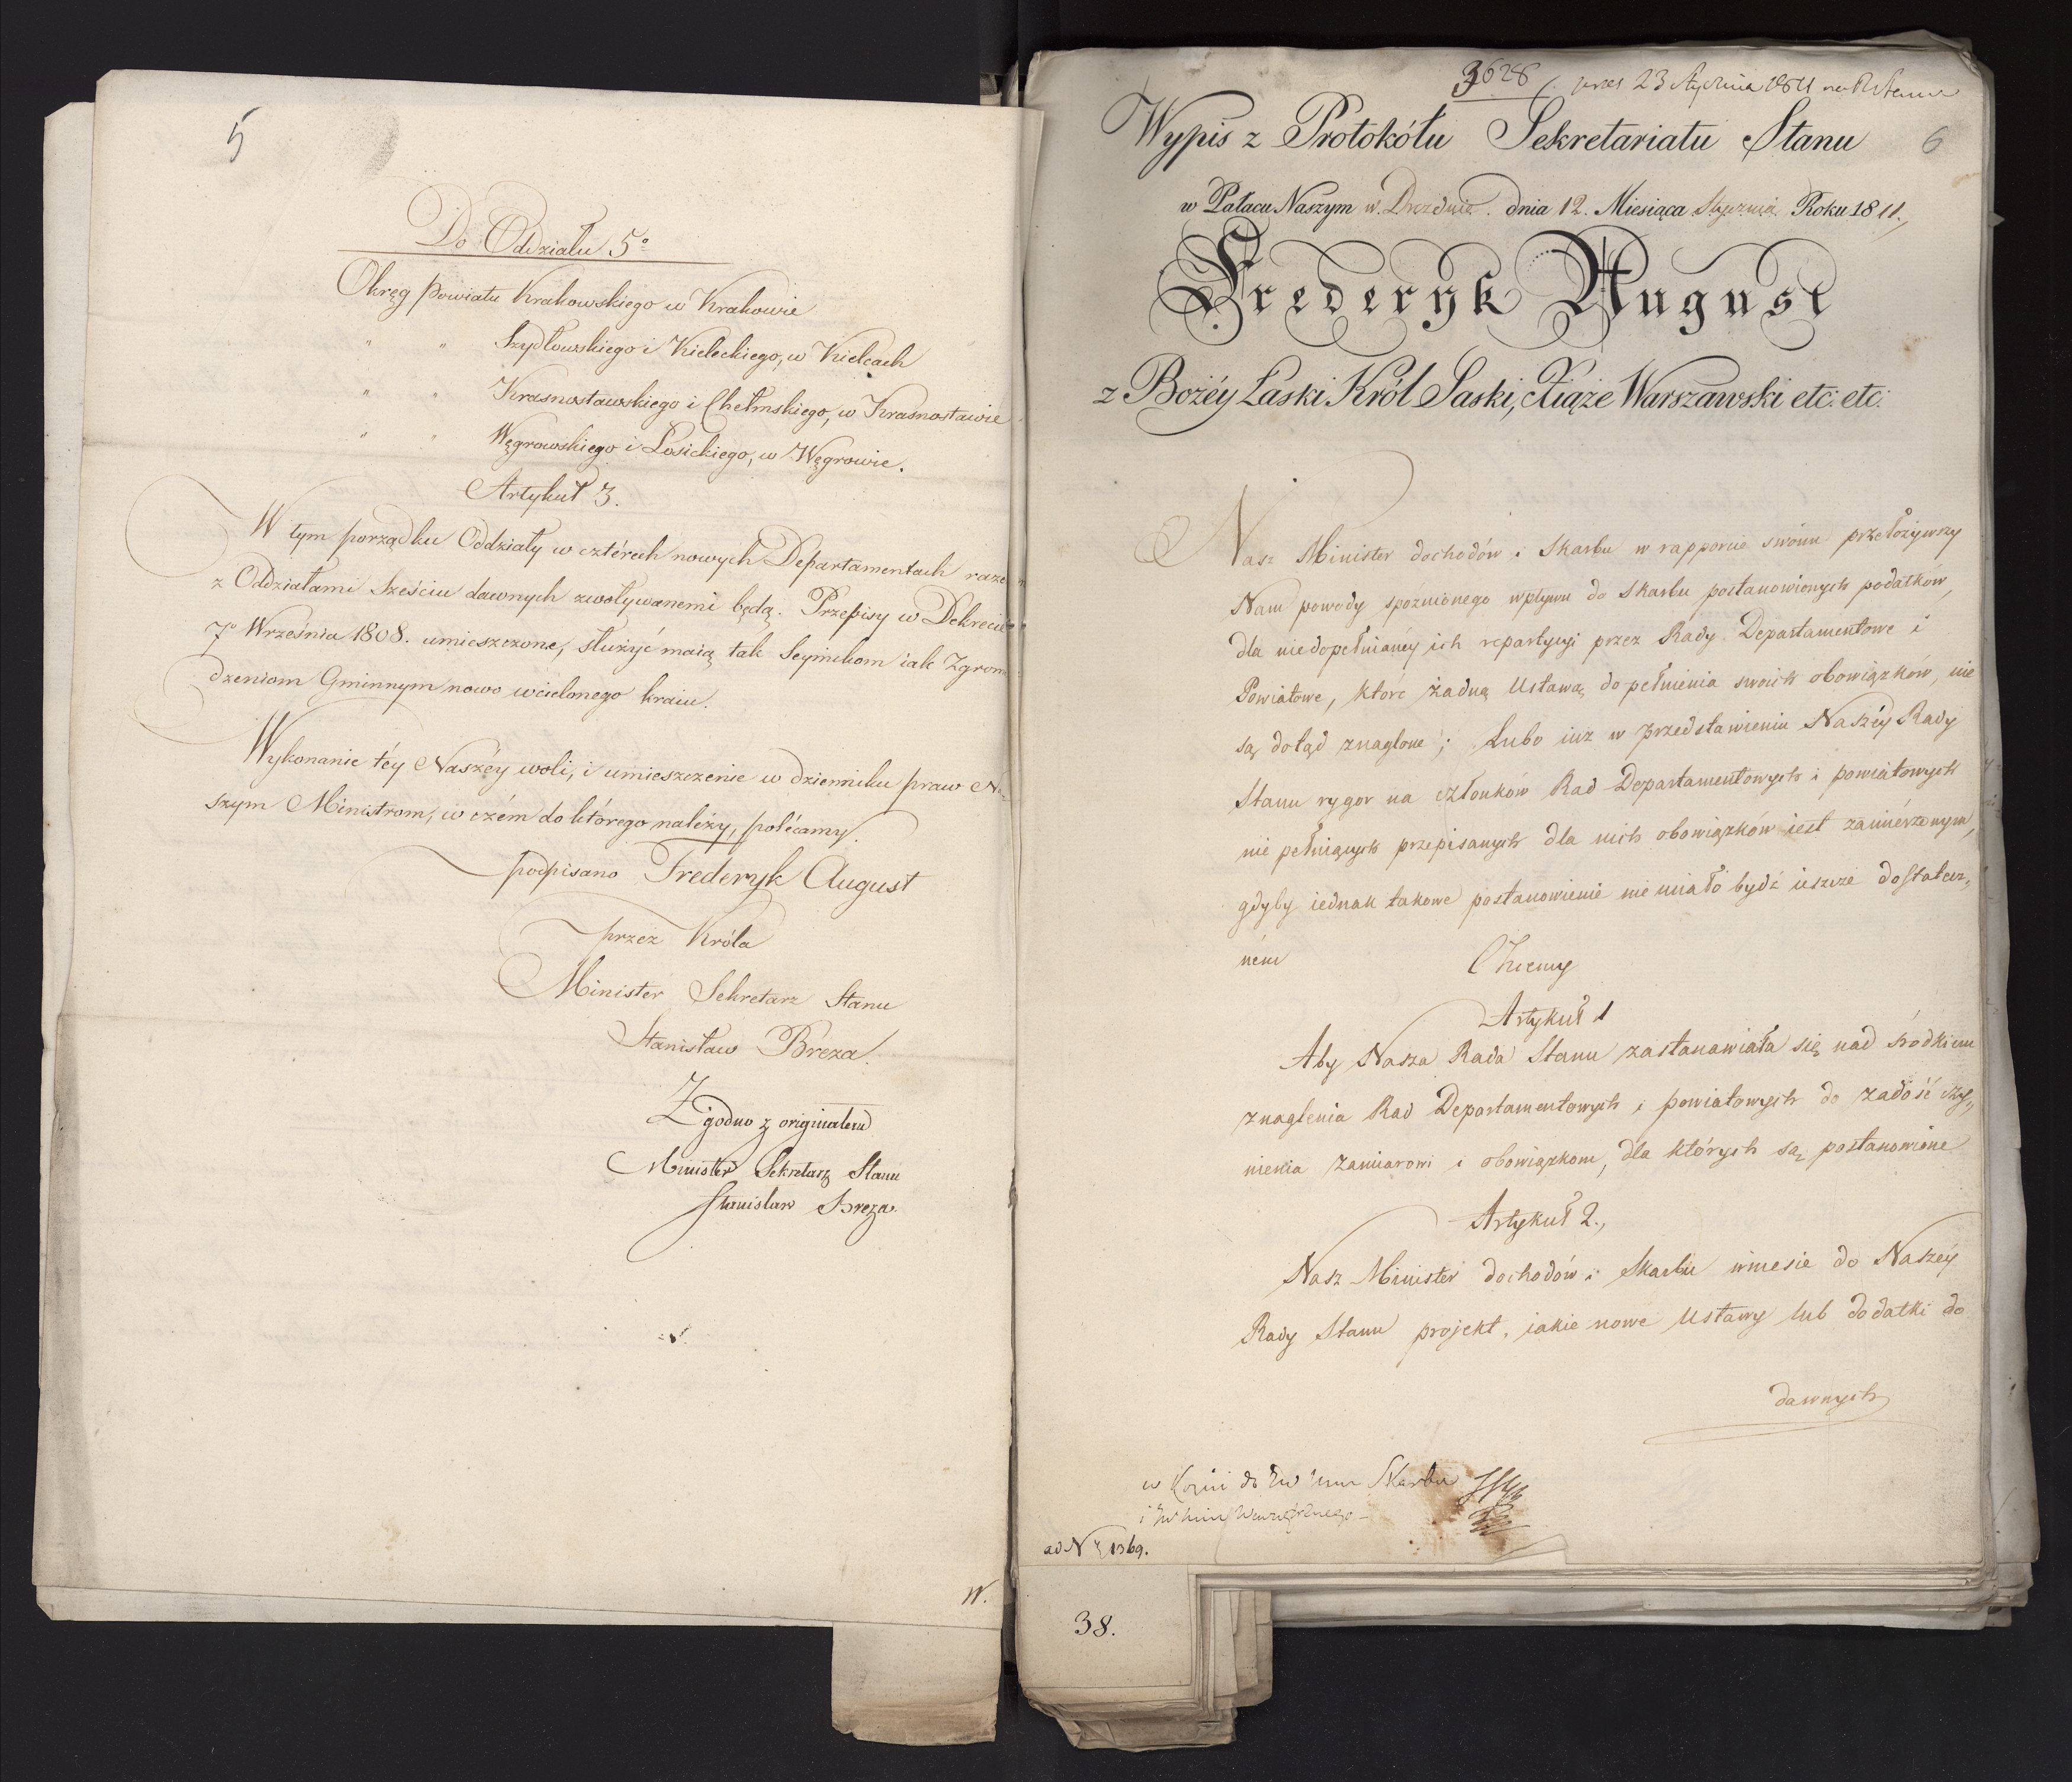 5
Do Oddziału 5º
Okręg Powiatu Krakowskiego w Krakowie
" " Szydłowskiego i Kieleckiego, w Kielcach
" " Krasnostawskiego i Chełmskiego, w Krasnostawie
" " Węgrowskiego i Łosickiego, w Węgrowie.
Artykuł 3.
W tym porządku Oddziały w cztérech nowych Departamentach raze
z Oddziałami Sześciu dawnych zwoływanemi będą. Przepisy w Dekrecie
7º Września 1808. umieszczone, służyć maią tak Seymikom iak Zgrom
dzeniom Gminnym nowo wcielonego kraiu.
Wykonanie téy Naszéy woli, i umieszczenie w dzienniku praw Na
szym Ministrom, w czém do którego należy, polécamy.
podpisano Frederyk August
przez Króla
Minister Sekretarz Stanu
Stanisław Breza.
Zgodno z originałem
Minister Sekretarz Stanu
Stanisław Breza.
W.
3628 23 Stycznia 1811
Wypis z Protokółu Sekretariatu Stanu
6
w Pałacu Naszym w Dreźnie. dnia 12. Miesiąca Stycznia Roku 1811.,
Frederyk August
z Bożéy Łaski Król Saski, Xiąże Warszawski etc: etc:
Nasz Minister dochodów i Skarbu w rapporcie swoim przełożywszy
Nam powody spoznionego wpływu do Skarbu postanowionych podatków,
dla niedopełnianéy ich repartycyi przez Rady Departamentowe i
Powiatowe, które żadną Ustawą do pełnienia swoich obowiązków, nie
są dotąd znaglone; Lubo iuz w przedstawieniu Naszéy Rady
Stanu rygor na członkow Rad Departamentowych i powiatowych
nie pełniących przepisanych dla nich obowiązków iest zamierzonym,
gdyby iednak takowe postanowienie nie miało bydź ieszcze dostatecz„
ném Chcemy
Artykuł 1
Aby Nasza Rada Stanu zastanawiała się nad środkiem
znaglenia Rad Departamentowych i powiatowych do zadość czy„
nienia zamiarowi i obowiązkom, dla których są postanowione
Artykuł 2.,
Nasz Minister dochodów i Skarbu wniesie do Naszéy
Rady Stanu projekt, iakie nowe Ustawy lub dodatki do
dawnych
Skarbu
ad N 1369.
38.